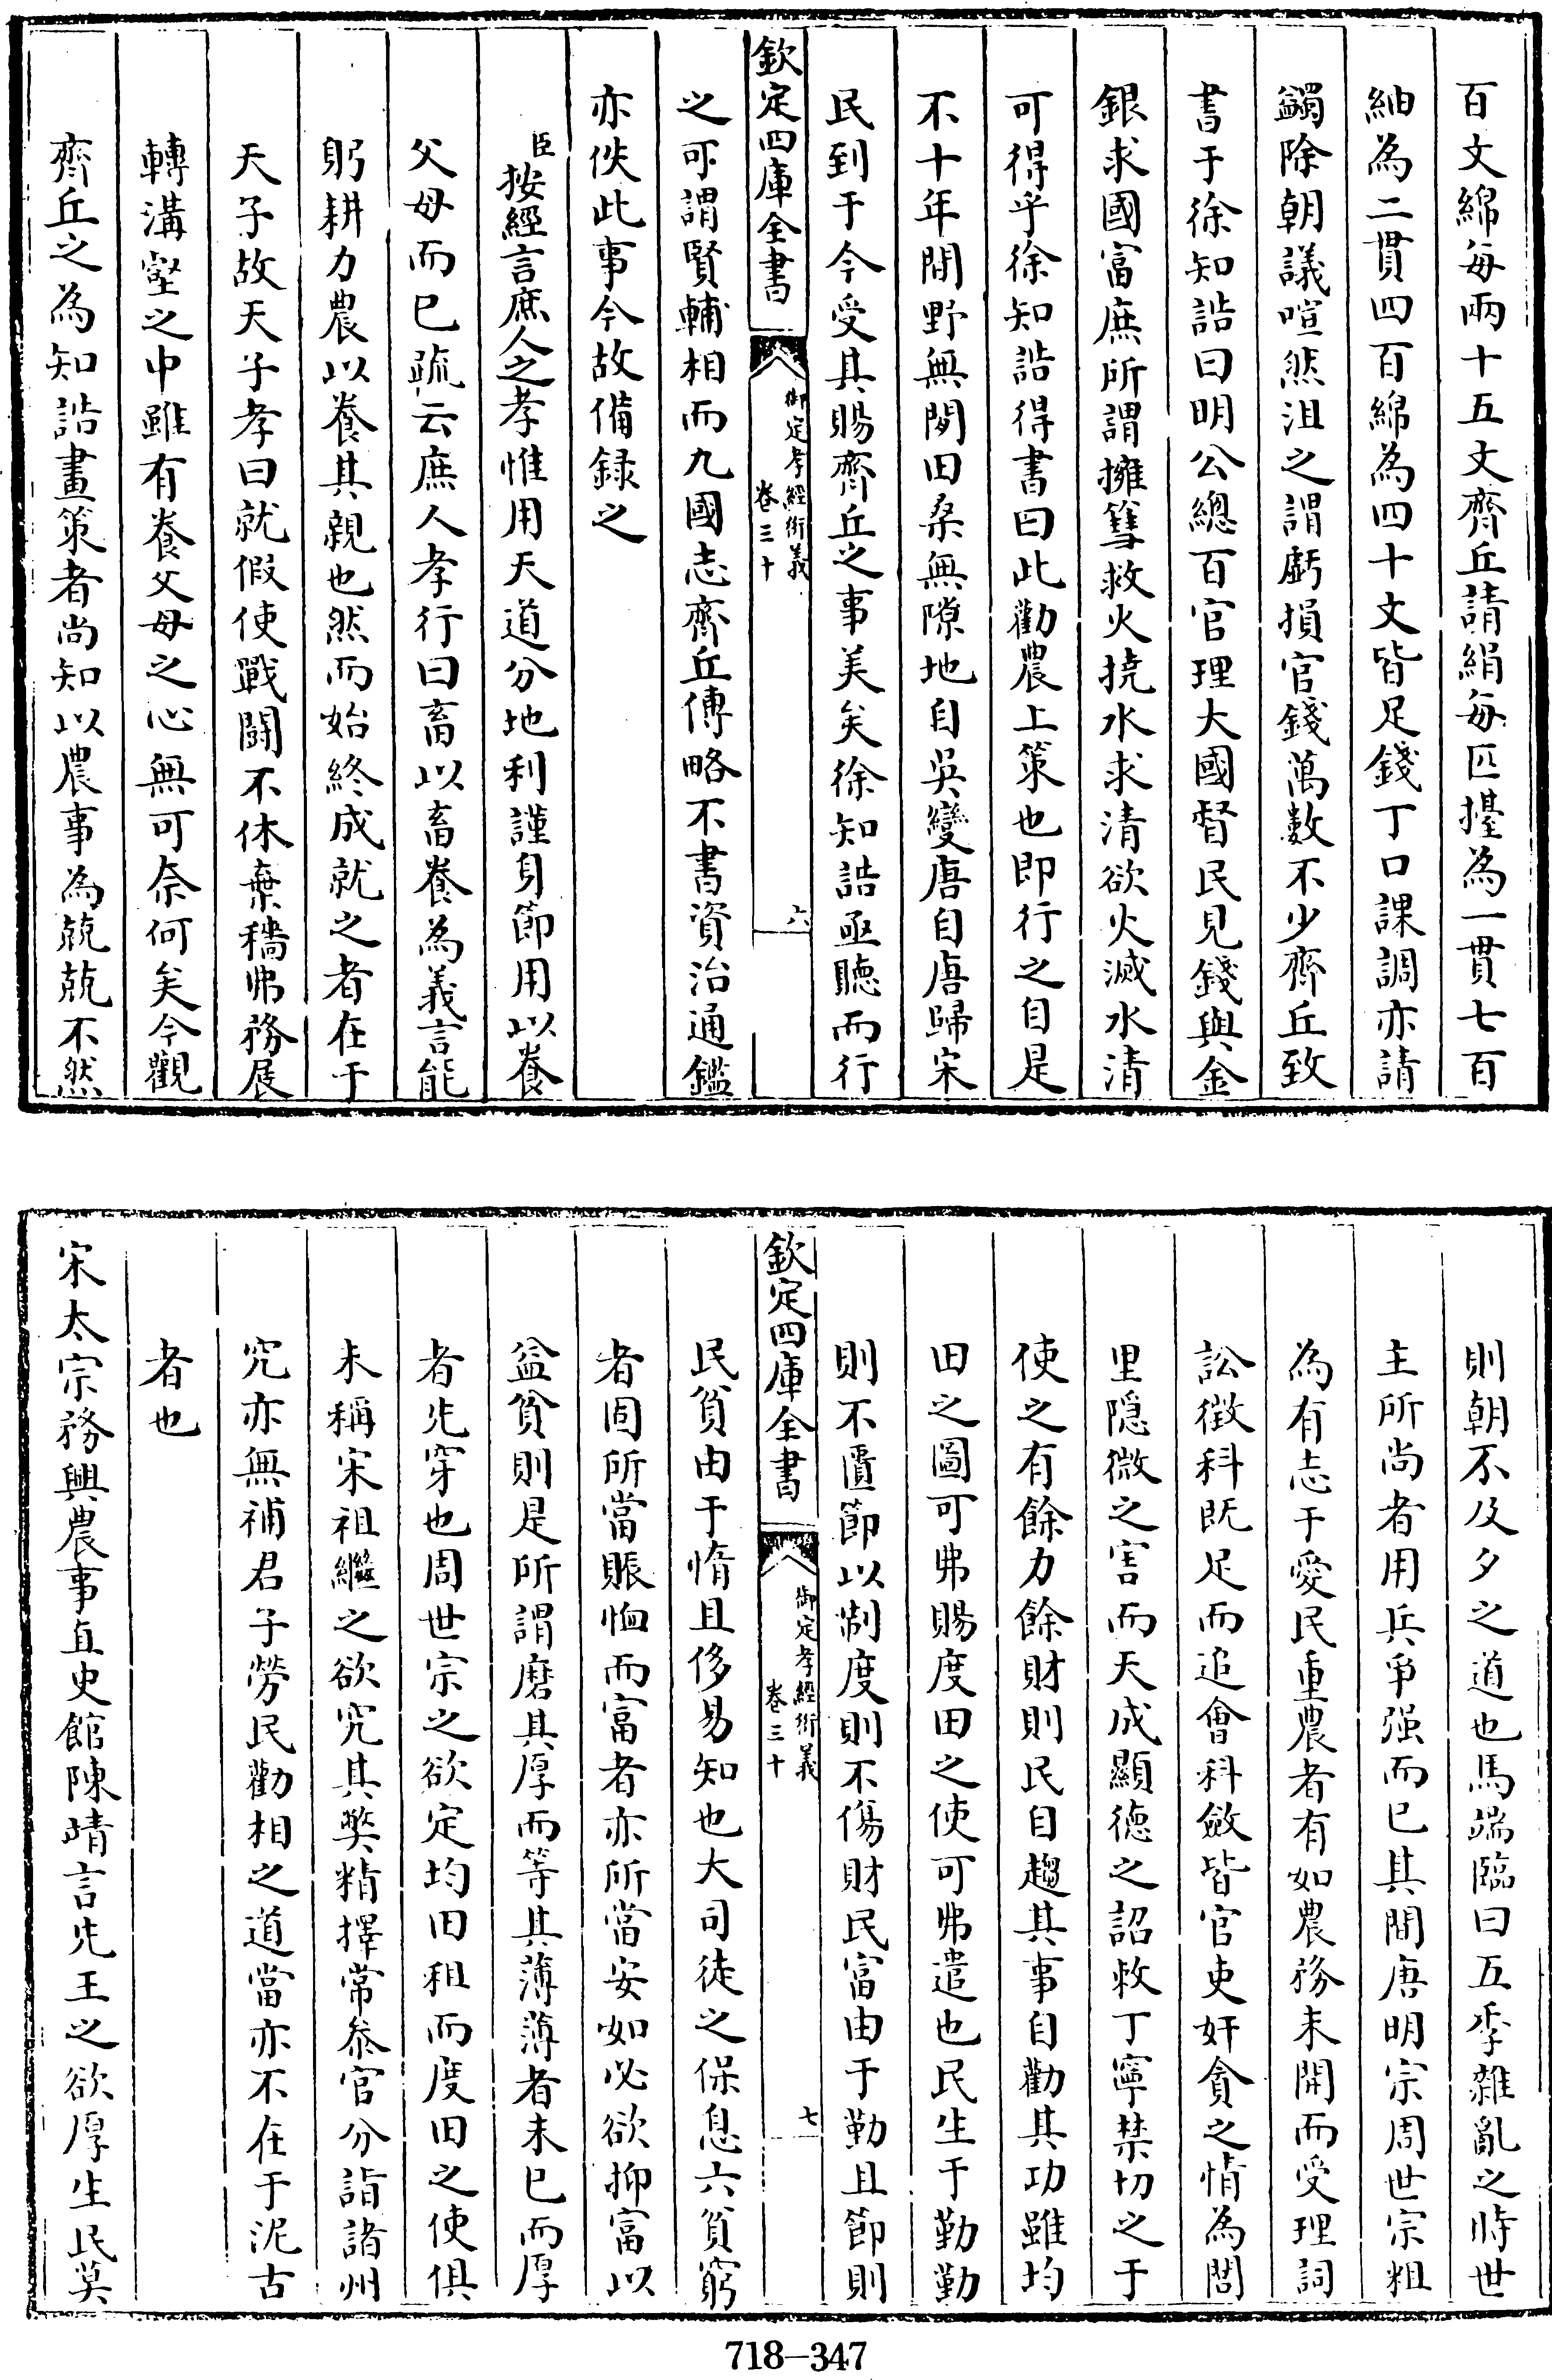 百文綿每兩十五文齊丘請絹每匹擡為一貫七百
紬為二貫四百綿為四十文皆足錢丁口課調亦請
蠲除朝議喧然沮之謂虧損官錢萬數不少齊丘致
書于徐知誥曰明公總百官理大國督民見錢與金
銀求國富庶所謂擁篲救火撓水求清欲火滅水清
可得乎徐知誥得書曰此勸農上策也即行之自是
不十年間野無閒田桑無隙地自吳變唐自唐歸宋
民到于今受其賜齊丘之事美矣徐知誥亟聽而行
欽定四庫全書
御定孝經衍義
卷三十
六
之可謂賢輔相而九國志齊丘傳略不書資治通鑑
亦佚此事今故備錄之
臣按經言庶人之孝惟用天道分地利謹身節用以養
父母而已疏云庶人孝行曰畜以畜養為義言能
躬耕力農以養其親也然而始終成就之者在于
天子故天子孝曰就假使戰鬭不休棄穡弗務展
轉溝壑之中雖有養父母之心無可奈何矣今觀
齊丘之為知誥畫策者尚知以農事為兢兢不然
則朝不及夕之道也馬端臨曰五季雜亂之時世
主所尚者用兵爭强而已其間唐明宗周世宗粗
為有志于愛民重農者有如農務未開而受理詞
訟徵科既足而追會科斂皆官吏奸貪之情為閭
里隱微之害而天成顯德之詔敕丁寧禁切之于
使之有餘力餘財則民自趨其事自勸其功雖均
田之圖可弗賜度田之使可弗遣也民生于勤勤
則不匱節以制度則不傷財民富由于勤且節則
欽定四庫全書
御定孝經衍義
卷三十
七
民貧由于惰且侈易知也大司徒之保息六貧窮
者固所當賑恤而富者亦所當安如必欲抑富以
益貧則是所謂磨其厚而等其薄薄者未已而厚
者先穿也周世宗之欲定均田租而度田之使俱
未稱宋祖繼之欲究其弊精擇常叅官分詣諸州
究亦無補君子勞民勸相之道當亦不在于泥古
者也
宋太宗務興農事直史館陳靖言先王之欲厚生民莫
718–347